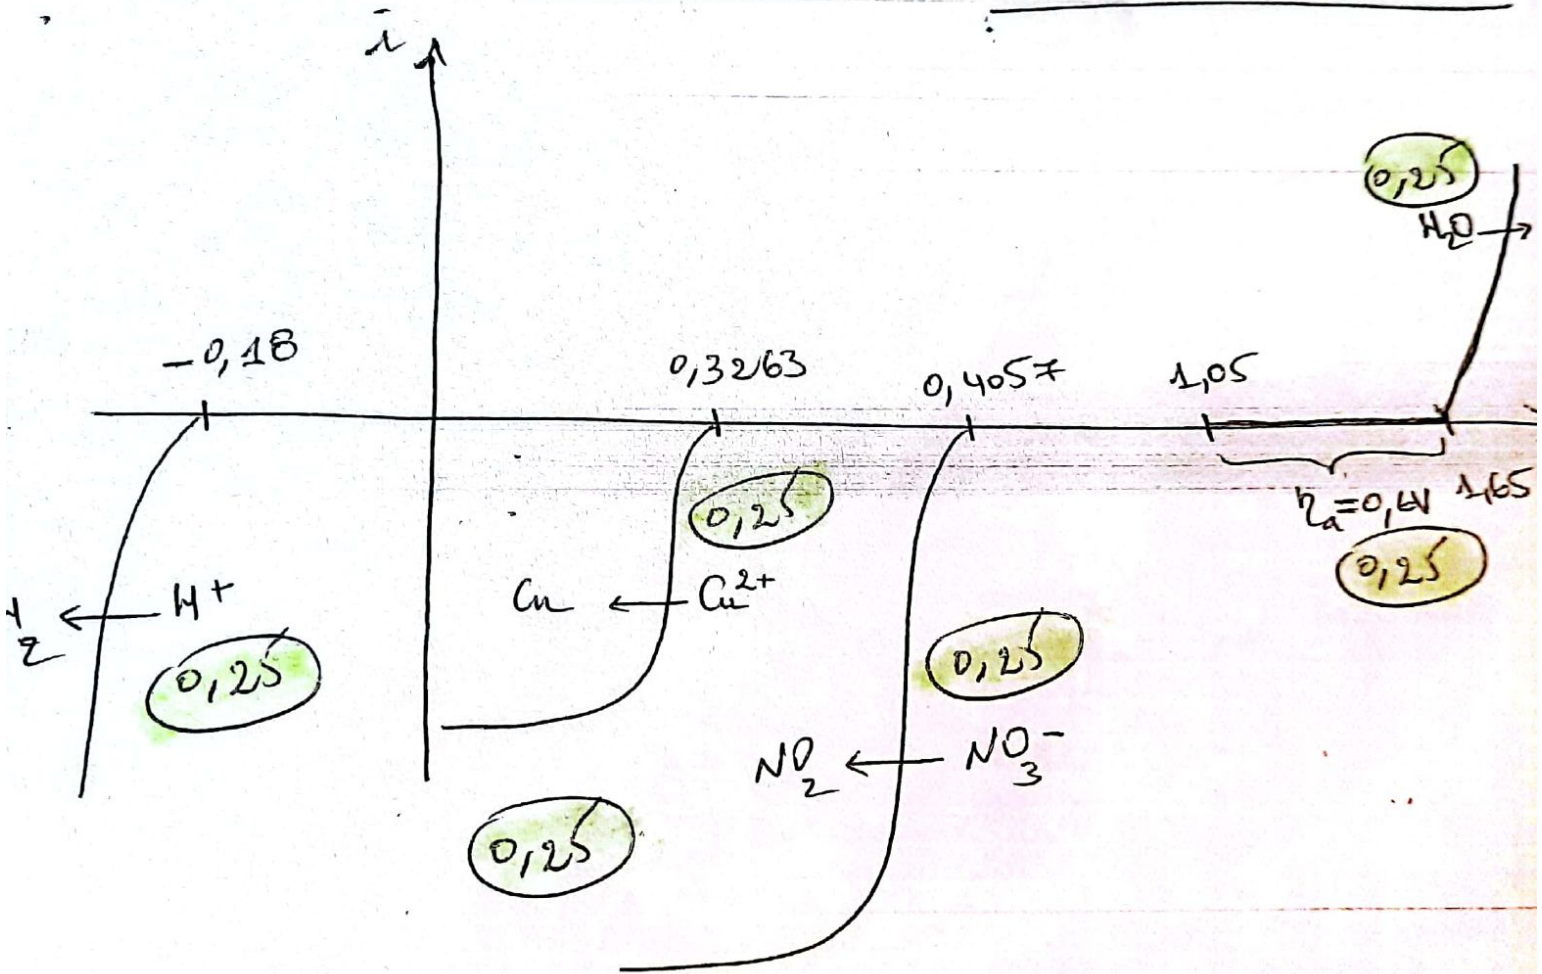 i
0,25
H₂O →
-0,18
0,3263
0,4057
1,05
ηa=0,6V
1,65
0,25
0,25
H₂ ← H⁺
Cu ← Cu²⁺
0,25
0,25
NO₂ ← NO₃⁻
0,25